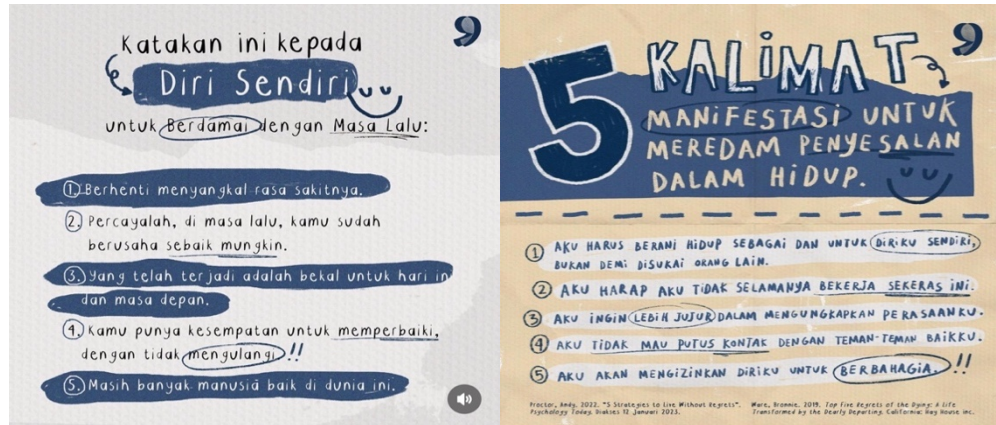 Katakan ini kepada
Diri Sendiri
untuk Berdamai dengan Masa Lalu:
1. Berhenti menyangkal rasa sakitnya.
2. Percayalah, di masa lalu, kamu sudah
berusaha sebaik mungkin.
3. Yang telah terjadi adalah bekal untuk hari in
dan masa depan.
4. Kamu punya kesempatan untuk memperbaiki,
dengan tidak mengulangi !!
5. Masih banyak manusia baik di dunia ini.
5 KALIMAT
MANIFESTASI UNTUK
MEREDAM PENYESALAN
DALAM HIDUP.
1 AKU HARUS BERANI HIDUP SEBAGAI DAN UNTUK DIRIKU SENDIRI,
BUKAN DEMI DISUKAI ORANG LAIN.
2 AKU HARAP AKU TIDAK SELAMANYA BEKERJA SEKERAS INI.
3 AKU INGIN LEBIH JUJUR DALAM MENGUNGKAPKAN PERASAANKU.
4 AKU TIDAK MAU PUTUS KONTAK DENGAN TEMAN-TEMAN BAIKKU.
5 AKU AKAN MENGIZINKAN DIRIKU UNTUK BERBAHAGIA. !!
Proctor, Andy. 2022. "5 Strategies to Live Without Regrets".
Psychology Today. Diakses 12 Januari 2023.
Ware, Bronnie. 2019. Top Five Regrets of the Dying: A Life
Transformed by the Dearly Departing. California: Hay House Inc.